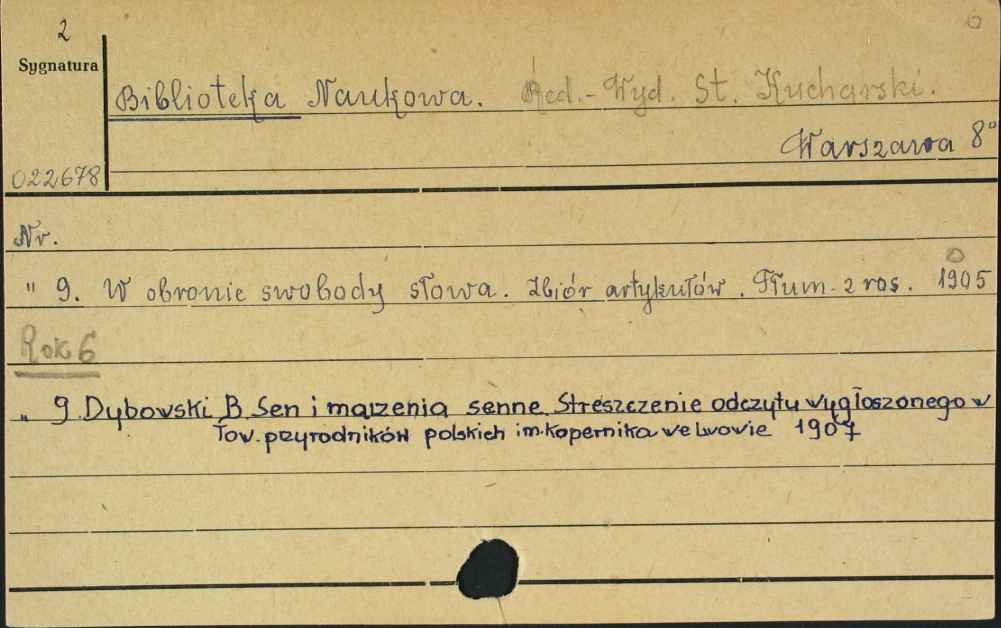 2
Sygnatura
Biblioteka Naukowa. Red.-Wyd. St. Kucharski.
Warszawa 8°
022678
Nr.
" 9. W obronie swobody słowa. Zbiór artykułów. Tłum. z ros. 1905
Rok 6
" 9 Dybowski B Sen i marzenia senne Streszczenie odczytu wygłoszonego w
Tow. przyrodników polskich im. Kopernika we Lwowie 1907